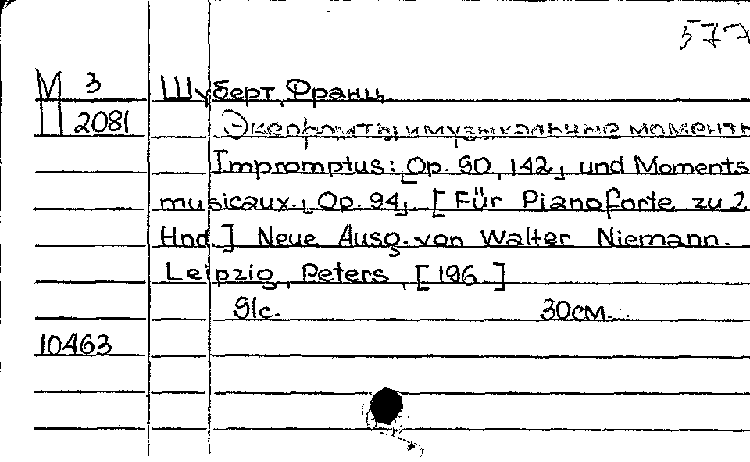 577
М 3 Шуберт, Франц.
П 2081 Экспромты и музыкальные моменты
Impromptus: Op. 90, 142, und Moments
musicaux. Op. 94. [Für Pianoforte zu 2
Hnd.] Neue Ausg. von Walter Niemann.
Leipzig, Peters, [196 ]
91с. 30см.
10463